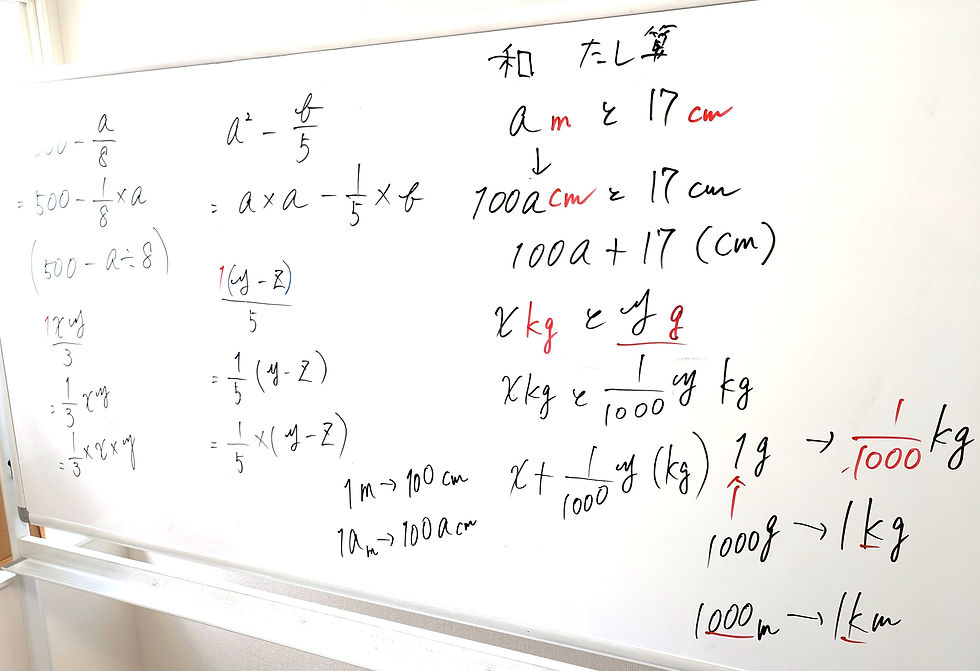 00 - a/8
= 500 - 1/8 × a
(500 - a ÷ 8)
1xy/3
= 1/3 xy
= 1/3 × x × y
a² - b/5
= a × a - 1/5 × b
1(y - z)/5
= 1/5 (y - z)
= 1/5 × (y - z)
1m → 100 cm
1am → 100a cm
和 たし算
a m と 17 cm
↓
100a cm と 17 cm
100a + 17 (cm)
x kg と y g
x kg と 1/1000 y kg
x + 1/1000 y (kg)
1g → 1/1000 kg
↑
1000g → 1kg
1000m → 1km